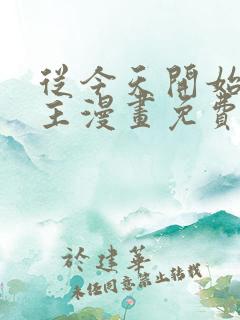 從今天開始
王漫畫免費
於建華
未經同意禁止轉載